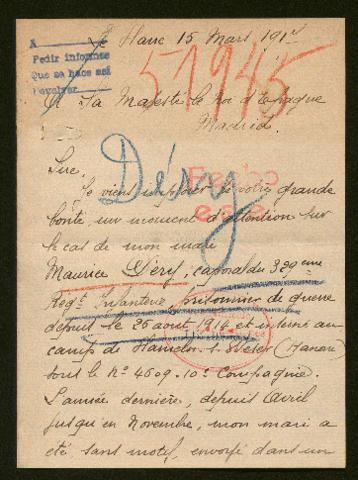 Le Havre 15 Mars 191
A
Pedir informes
Que se hace así
Devolver
51945
A Sa Majesté le Roi d'Espagne
Madrid.
Déry
Sire,
Je viens implorer de votre grande
bonté, un moment d'attention sur
le cas de mon mari
Maurice Déry, caporal du 329eme
Regt. Infanterie, prisonnier de guerre
depuis le 26 août 1914 et interné au
camp de Hameln s. Weser (Hanovre)
sous le No 4609. 10e Compagnie.
L'année dernière, depuis Avril
jusqu'en Novembre, mon mari a
été, sans motif, envoyé dans un